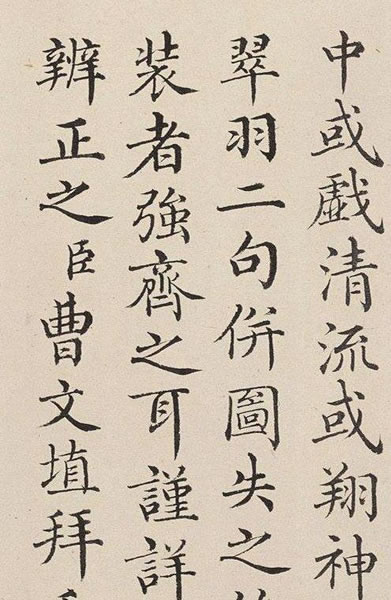 中或戲清流或翔神
翠羽二句併圖失之
装者強齊之耳謹詳
辨正之臣曹文埴拜